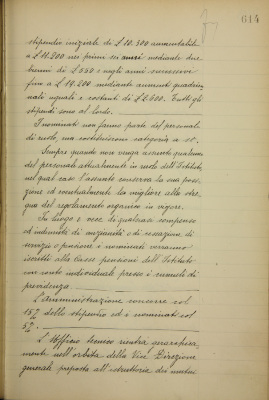 614
stipendio iniziale di £ 10.300 aumentabile
a £ 11.200 nei primi sei anni mediante due
bienni di £ 550 e negli anni successivi
fino a £ 19.200 mediante aumenti quadrien-
nali uguali e costanti di £ 2.600. Tutti gli
stipendi sono al lordo.
I nominati non fanno parte del personale
di ruolo, ma costituiscono categoria a sé.
Sempre quando non venga assunto qualcuno
del personale attualmente in ruolo dell'Istituto,
nel qual caso l'assunto conserva la sua posi-
zione ed eventualmente la migliora alla stre-
gua del regolamento organico in vigore.
In luogo e vece di qualsiasi compenso
ed indennità di anzianità o di cessazione di
servizio o pensione i nominati verranno
iscritti alla Cassa pensioni dell'Istituto
con conto individuale presso i cumuli di
previdenza.
L'amministrazione concorre col
15% dello stipendio ed i nominati col
5%.
L'Ufficio tecnico rientra
mente nell'orbita della Vice Direzione
generale preposta all'istruttoria dei mutui